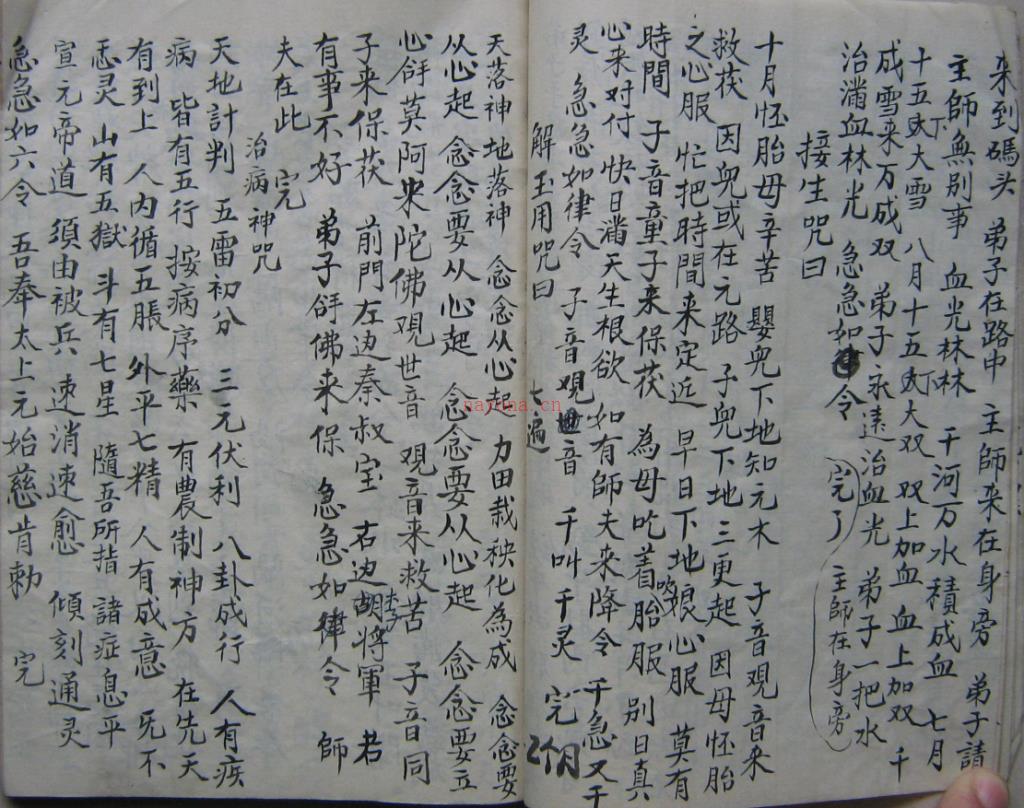 来到碼头 弟子在路中 主師来在身旁 弟子請
主師無別事 血光林林 千河万水積成血 七月
十五大雪 八月十五大双 双上加血 血上加双 千
成雪来万成双 弟子永遠治血光 弟子一把水
治滿血林光 急急如律令 完了 主師在身旁
接生咒曰
十月怪胎母辛苦 嬰兒下地知元木 子音观音来
救茯 因兒或在元路 子兒下地三更起 因母怪胎
之心服 忙把時間来定近 早日下地娘心服 莫有
時間 子音童子来保茯 為母吃着胎服 别日真
心来对付 快日潘天生根欲 如有師夫来降令 千急又千
灵 急急如律令 子音观世音 千叫千灵 完
解玉用咒曰 七遍
天落神地落神 念念从心起 力田栽秧化為成 念念要
从心起 念念要从心起 念念要从心起 念念要立
心𠕇莫阿来陀佛观世音 观音来救苦 子音同
子来保茯 前門左边秦叔宝 右边胡將軍 若
有事不好 弟子𠕇佛来保 急急如律令 師
夫在此 完
治病神咒
天地計判 五雷初分 三元伏利 八卦成行 人有疾
病 皆有五行 按病序藥 有農制神方 在先天
有到上 人内循五脹 外平七精 人有成意 旡不
恶灵 山有五獄 斗有七星 隨吾所指 諸症息平
宣元帝道 須由被兵 速消速愈 傾刻通灵
急急如六令 吾奉太上元始慈肯勅 完
nayona.cn